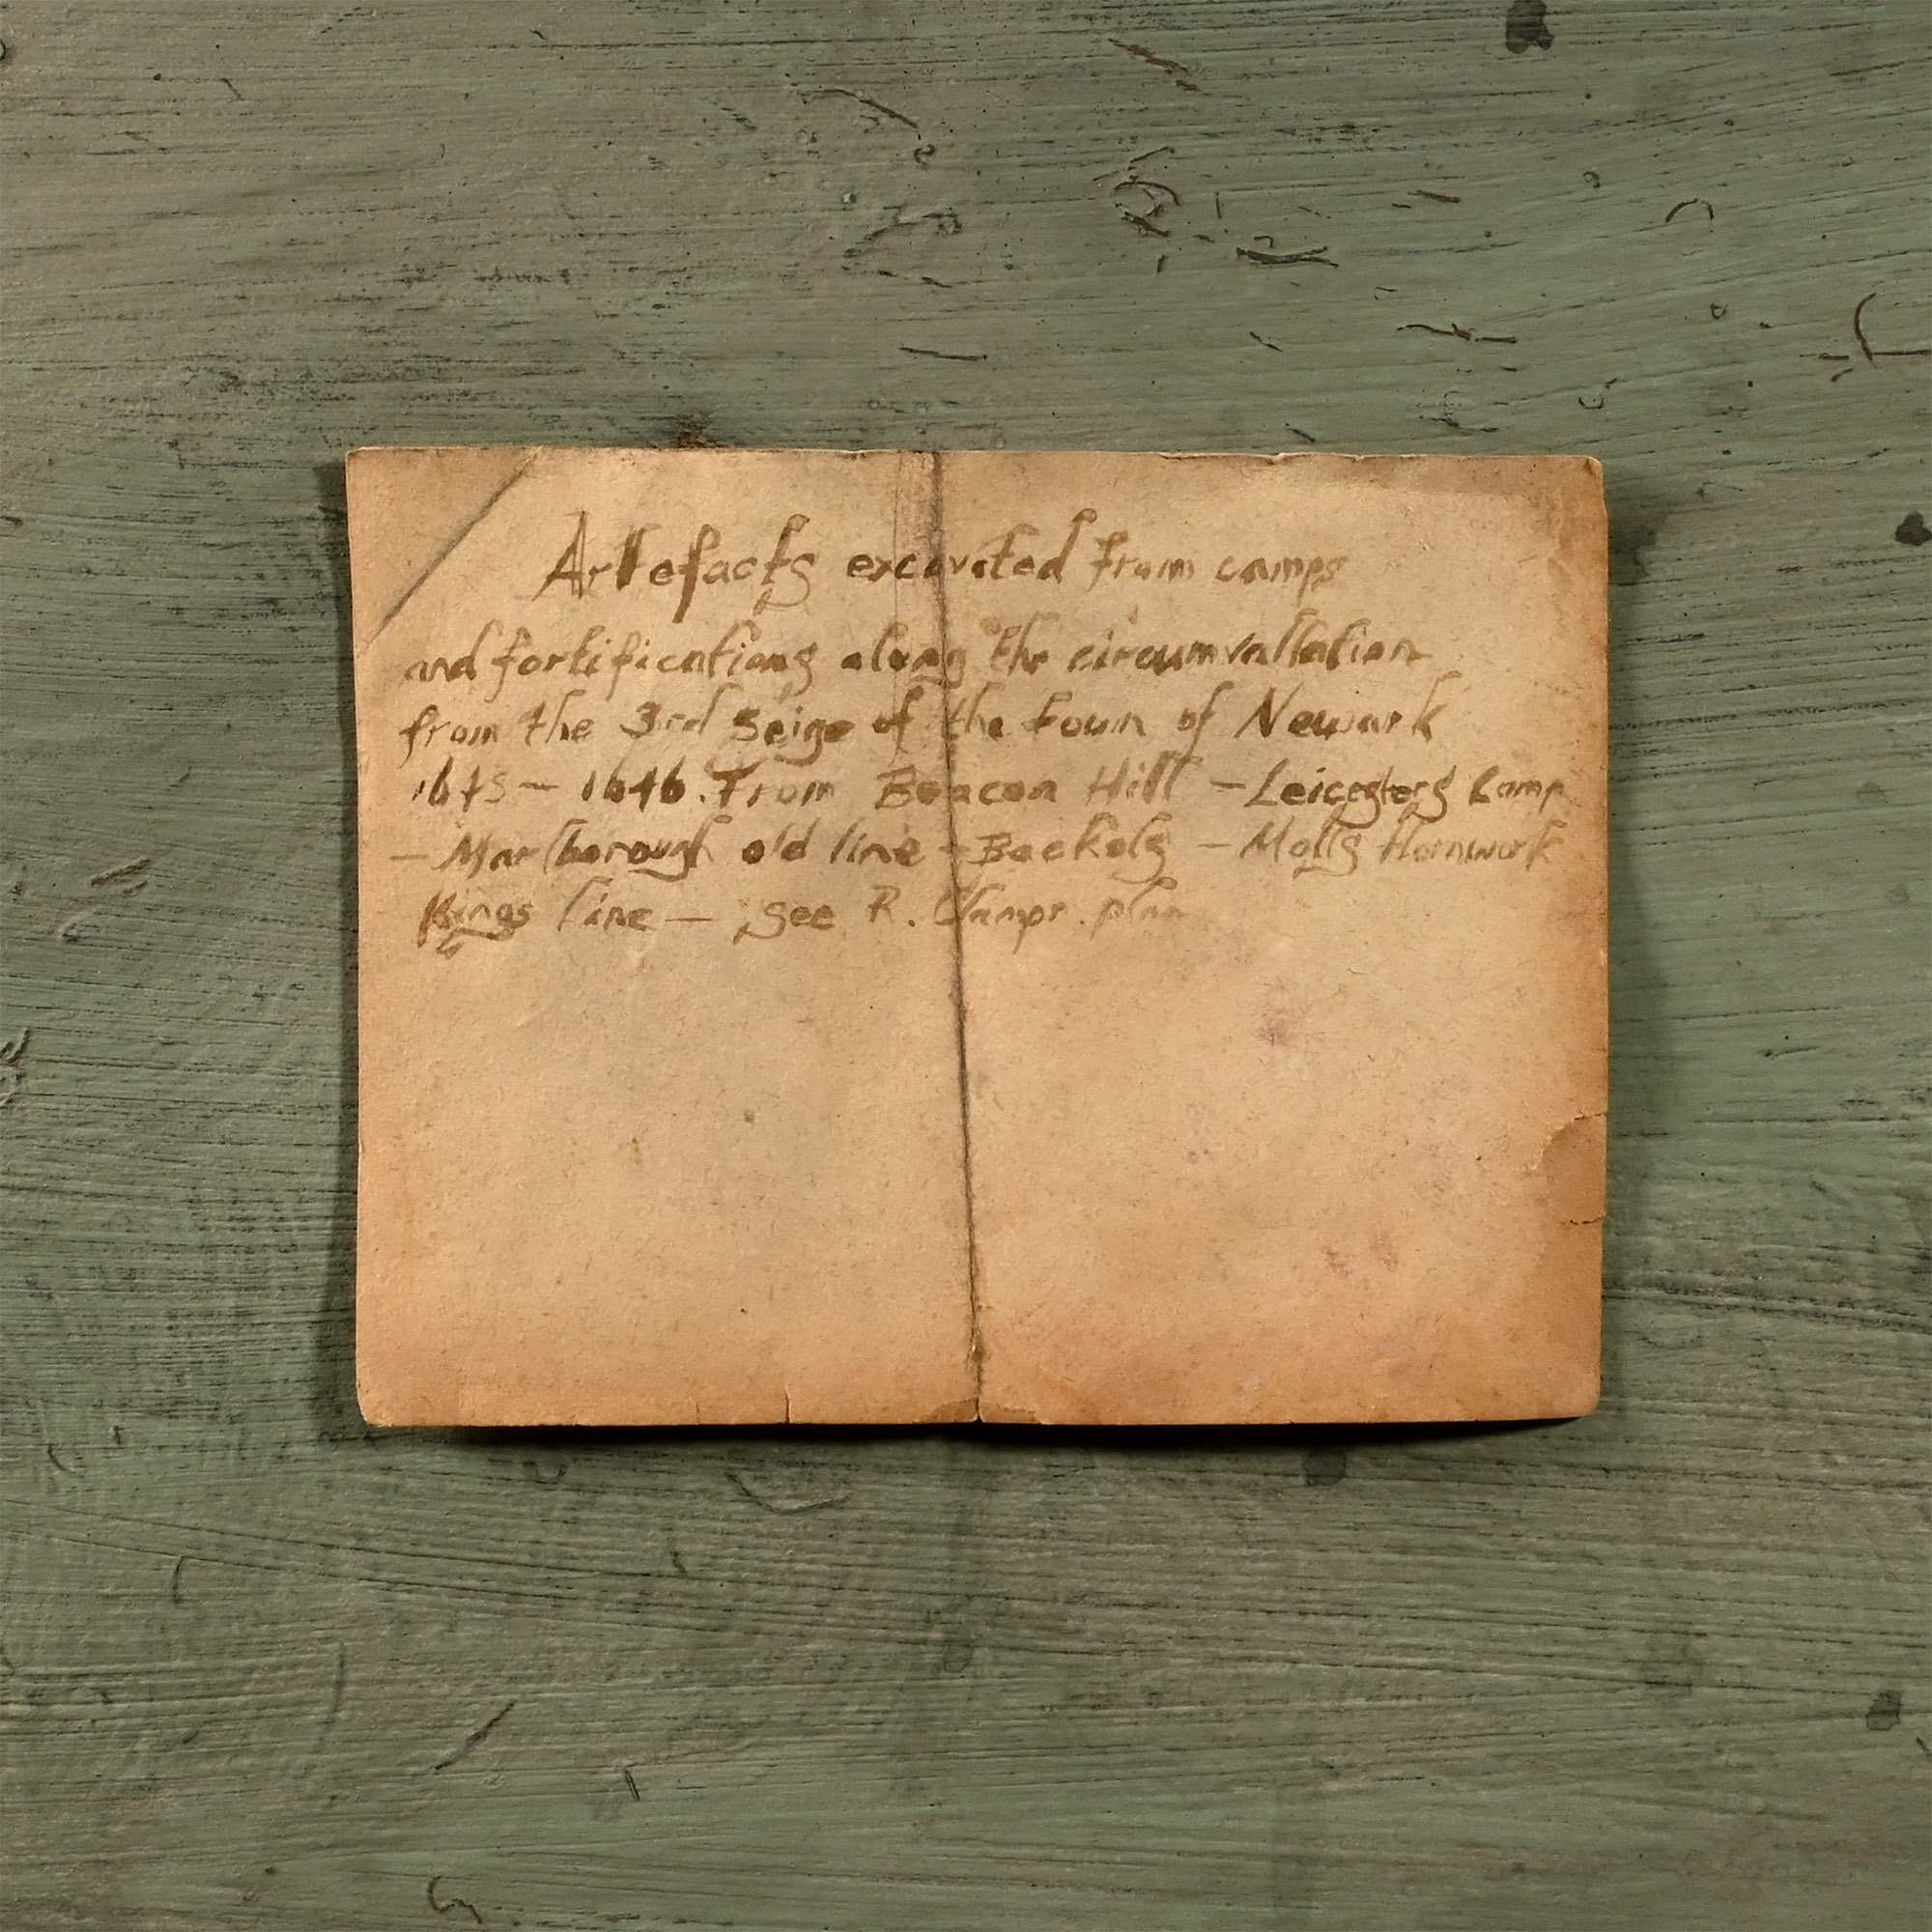 Artefacts excavated from camps
and fortifications along the circumvallation
from the 3rd Seige of the town of Newark
1645 – 1646. From Beacon Hill – Leicesters Camp
– Marlborough old line – – Molls Hornwork
Kings line – See R. plan